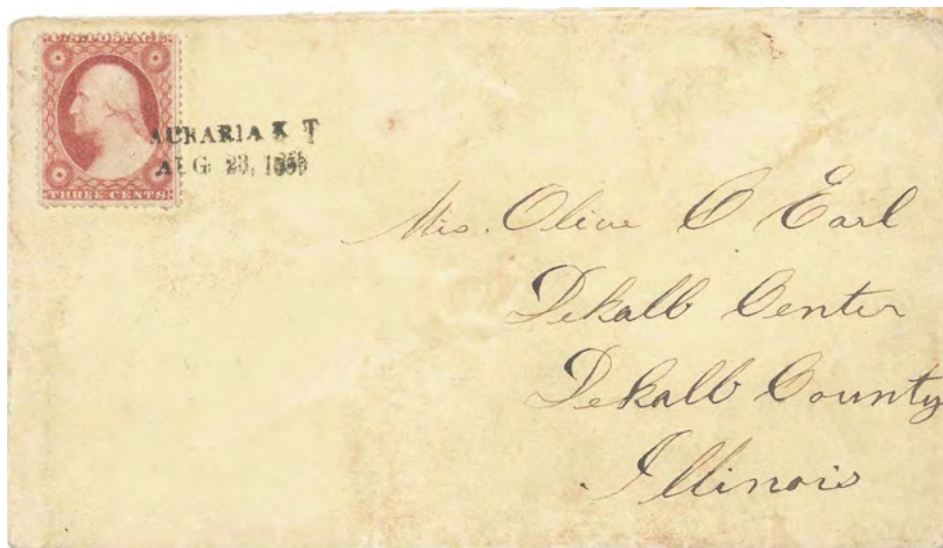 U.S. POSTAGE
THREE CENTS
AURARIA K T
AUG 23, 
Mis. Olive C Earl
Dekalb Center
Dekalb County
Illinois